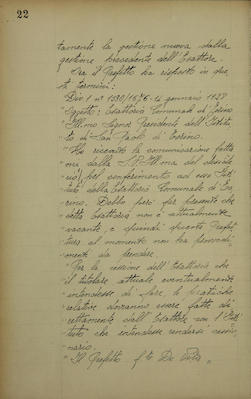 22
tamente la gestione nuova dalla
gestione precedente dell'Esattore.
Ora il Prefetto ha risposto in que-
sti termini:
Div. 1 n° 1530/1676 - 14 gennaio 1928
Oggetto: Esattoria Comunale di Torino
Ill.mo Signor Presidente dell'Istitu-
to di San Paolo di Torino.
"Ho ricevuto la comunicazione fatta-
mi dalla S.V. Ill.ma del
pel conferimento ad esso Isti-
tuto della Esattoria Comunale di To-
rino. Debbo però far presente che
detta Esattoria non è attualmente
vacante, e quindi questa Prefet-
tura al momento non ha provvedi-
menti da prendere.
"Per la cessione dell'Esattoria che
il titolare attuale eventualmente
intendesse di fare, le pratiche
relative dovranno essere fatte di-
rettamente dall'Esattore con l'Isti-
tuto che intendesse rendersi cessio-
nario.
"Il Prefetto f.to De Vita"